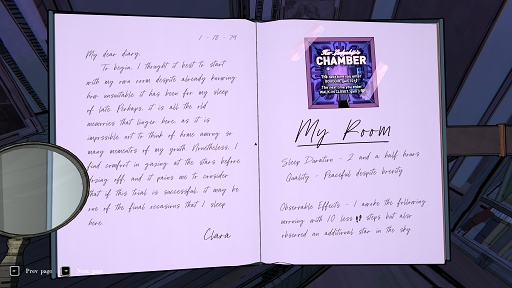 1 - 18 - 29
My dear diary,
To begin, I thought it best to start
with my own room despite already knowing
how unsuitable it has been for my sleep
of late. Perhaps, it is all the old
memories that linger here, as it is
impossible not to think of home among so
many mementos of my youth. Nonetheless, I
find comfort in gazing at the stars before
dozing off, and it pains me to consider
that if this trial is successful, it may be
one of the final occasions that I sleep
here.
Clara
Her Ladyship's
CHAMBER
My Room
Sleep Duration - 2 and a half hours
Quality - Peaceful despite brevity
Observable Effects - I awoke the following
morning with 10 less steps but also
observed an additional star in the sky
Prev page
Next page